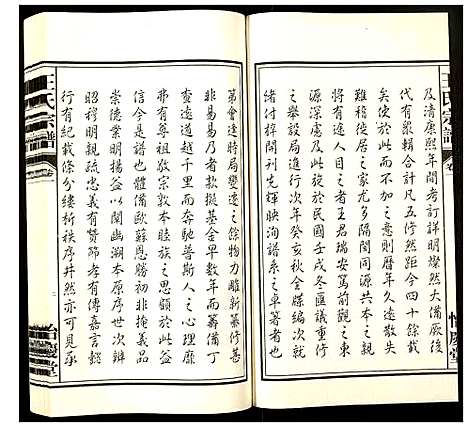 王氏宗譜
卷
怡慶堂
及清康熙年間考訂詳明燦然大備厥後
代有裒輯合計凡五修然距今四十餘載
矣使於此而不加意則曆年久遠散失
難稽徙居之家尤多隔閡同源共本之親
將有途人目之者王君瑞安篤前觀之東
源深慮及此爰於民國壬戌冬匯議重修
之舉設局進行次年癸亥秋全牒編次就
緒付梓開刊先輝映洵譜系之束著者以
第會逢時局變遷之餘物力雕新纂修甚
非易易乃者款擬基金早數年而籌備丁
查遠道越千里而奔馳普斯人之心理靡
弗有尊祖敬宗敦本睦族之思顧於此益
信先是譜也體備歐蘇恩勝初非掩義品
崇德業明揚益以闡幽溯本原序世次辨
昭穆明親疏忠義有贊節孝有傳嘉言懿
行有紀裁條分縷析秩序井然亦可見承
王氏宗譜
卷
怡慶堂